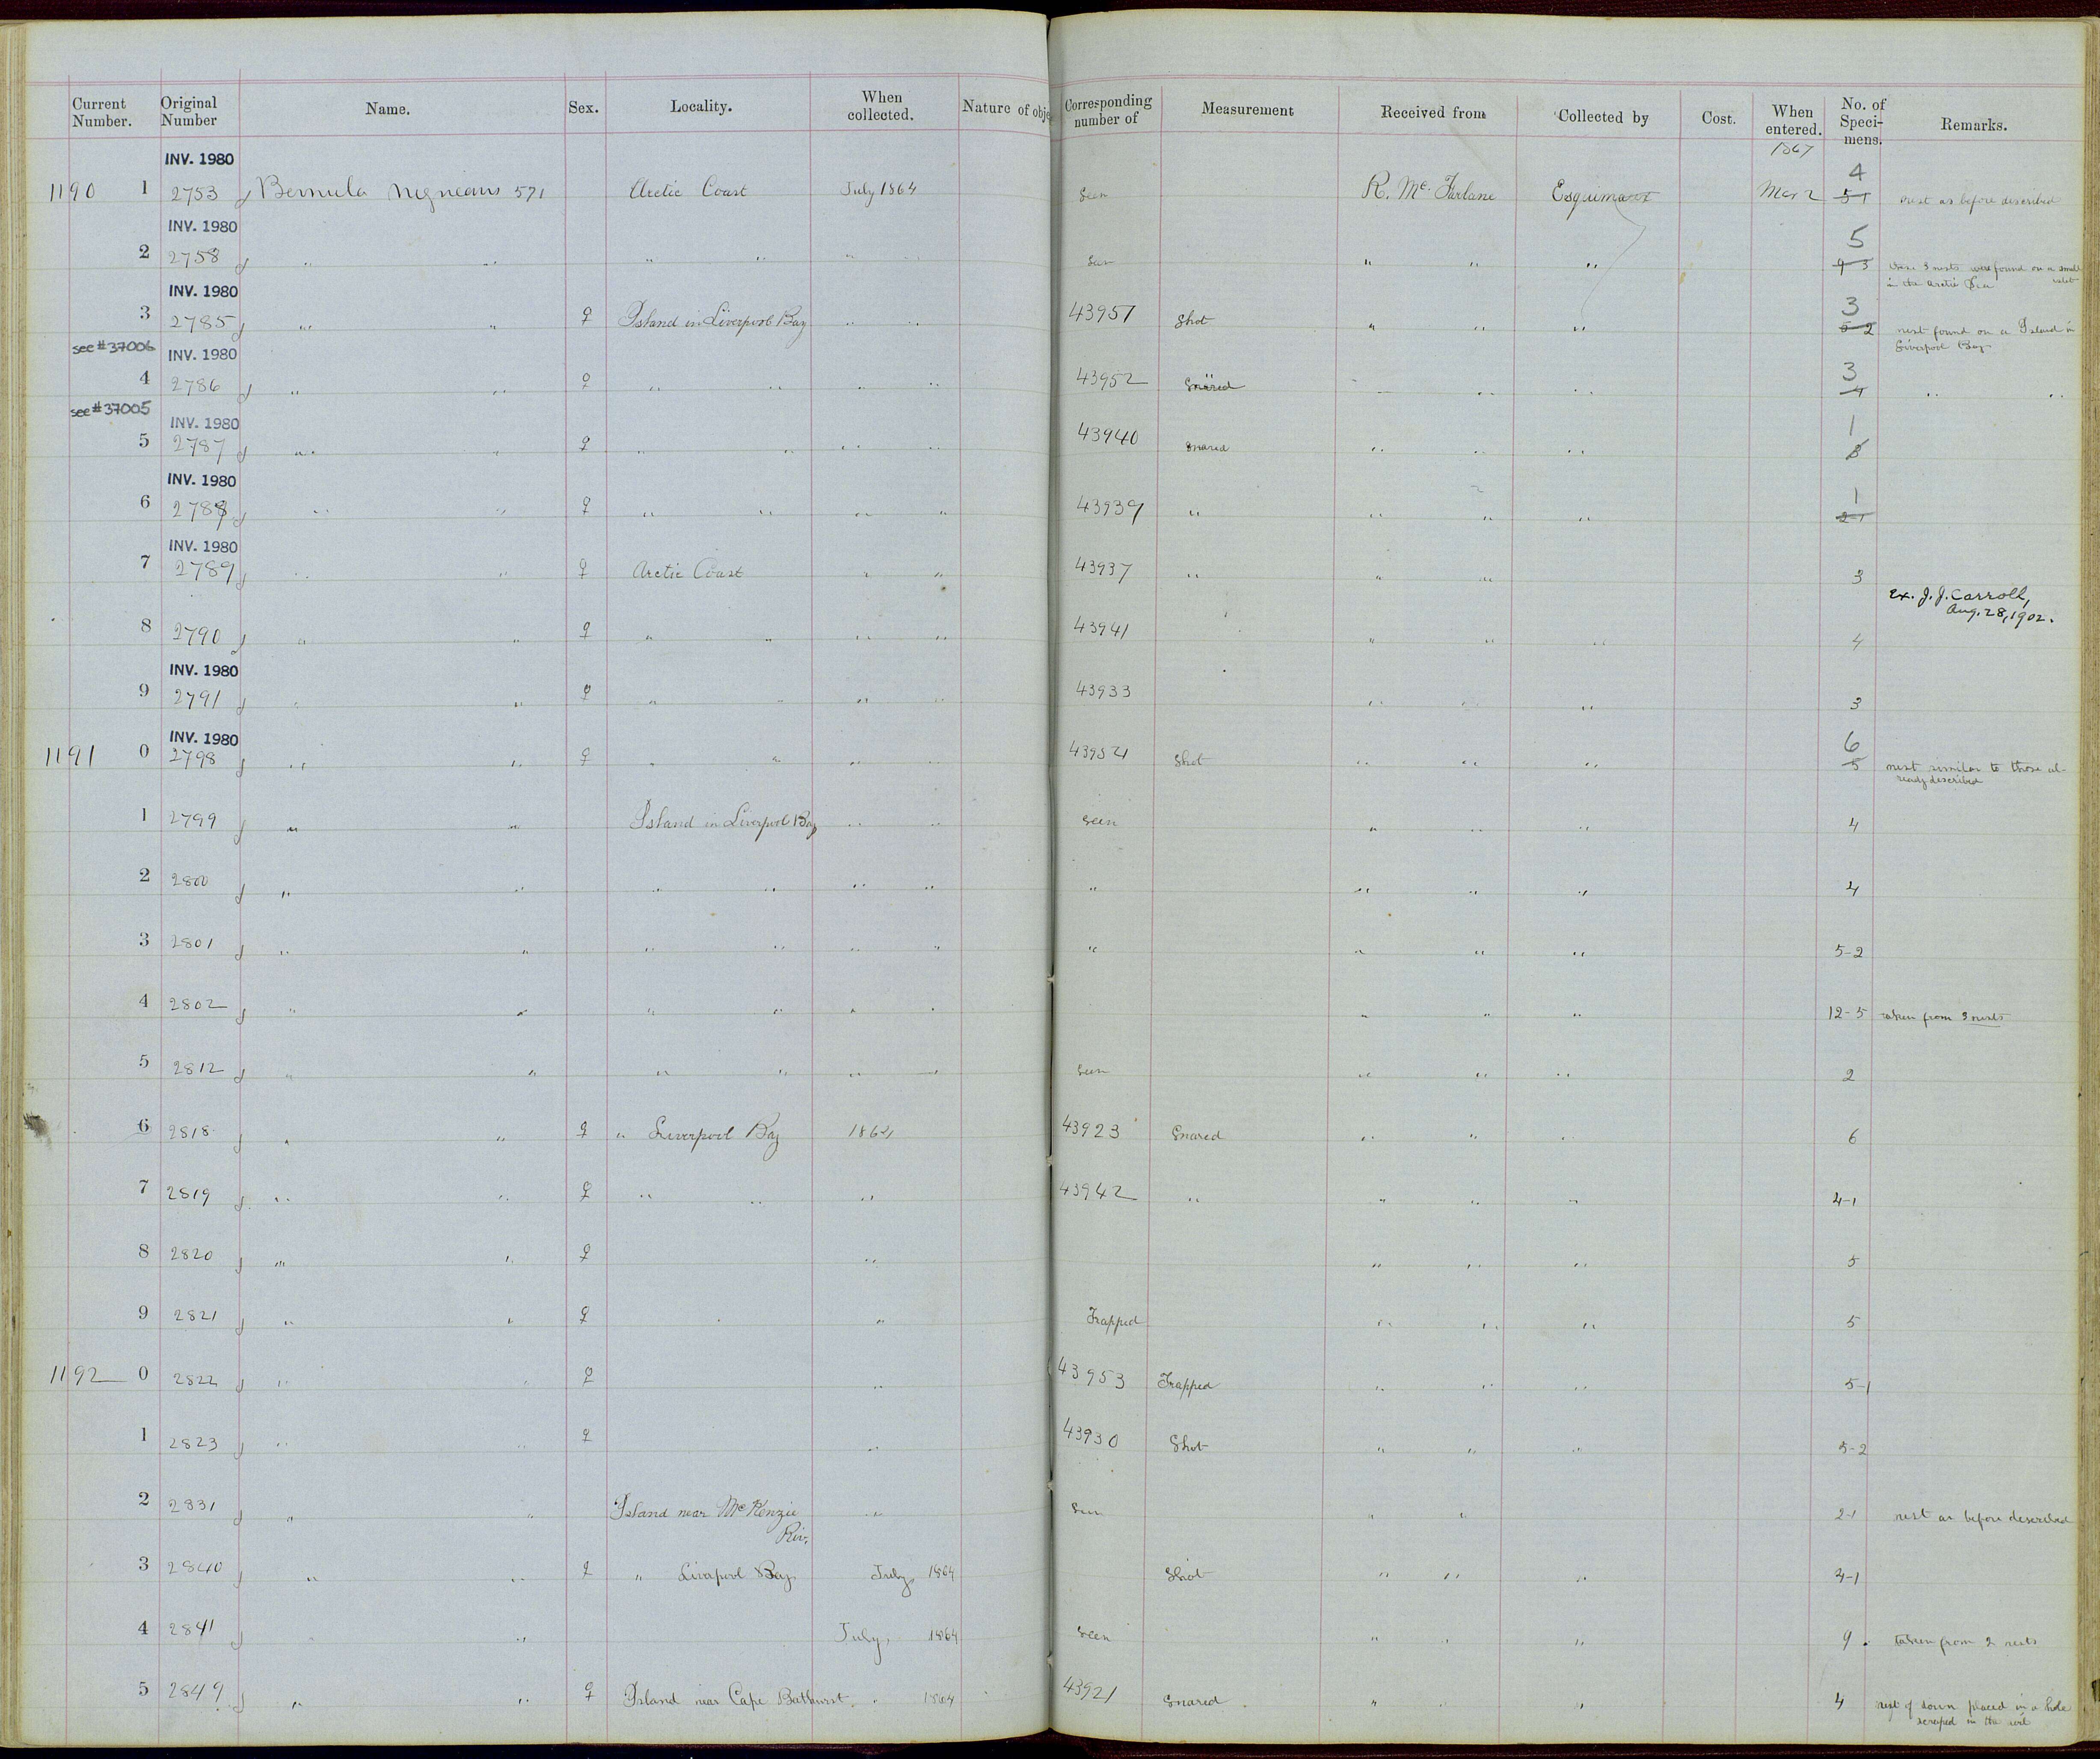 Current Number. Original Number Name. Sex. Locality. When collected. Nature of obje Corresponding number of Measurement Received from Collected by Cost. When entered. No. of Specimens. Remarks.
1867
INV. 1980 4
1190 1 2753 Bernicla nigricans 571 Arctic Coast July 1864 Seen R. McFarlane Esquimaux Mar 2 5-1 nest as before described
INV. 1980 5
2 2758 " " " " " " Seen " " " 9-3 these 3 nests were found on a small islet in the Arctic Sea
INV. 1980 3
3 2785 " " ♀ Island in Liverpool Bay " " 43951 Shot " " " 5-2 nest found on a Island in Liverpool Bay
see #37006 INV. 1980 3
4 2786 " " ♀ " " " " 43952 Snared " " " 4 " "
see #37005 INV. 1980 1
5 2787 " " ♀ " " " " 43940 Snared " " " 3
INV. 1980 1
6 2788 " " ♀ " " " " 43939 " " " " 2-1
INV. 1980
7 2789 " " ♀ Arctic Coast " " 43937 " " " 3
Ex. J. J. Carroll, Aug. 28, 1902.
8 2790 " " ♀ " " " " 43941 " " " 4
INV. 1980
9 2791 " " ♀ " " " " 43933 " " " 3
INV. 1980 6
1191 0 2798 " " ♀ " " " " 43954 Shot " " " 5 nest similar to those already described
1 2799 " " Island in Liverpool Bay " " Seen " " " 4
2 2800 " " " " " " " " " " 4
3 2801 " " " " " " " " " " 5-2
4 2802 " " " " " " " " " 12-5 taken from 3 nests
5 2812 " " " " " " Seen " " " 2
6 2818 " " ♀ " Liverpool Bay 1864 43923 Snared " " " 6
7 2819 " " ♀ " " " 43942 " " " " 4-1
8 2820 " " ♀ " " " " 5
9 2821 " " ♀ " Trapped " " " 5
1192 0 2822 " " ♀ " 43953 Trapped " " " 5-1
1 2823 " " ♀ " 43930 Shot " " " 5-2
2 2831 " " Island near McKenzie Riv. " Seen " " 2-1 nest as before described
3 2840 " " ♀ " Liverpool Bay July 1864 Shot " " " 4-1
4 2841 " " July, 1864 Seen " " " 9 taken from 2 nests
5 2849 " " ♀ Island near Cape Bathurst " 1864 43921 Snared " " " 4 nest of down placed in a hole scraped in the soil